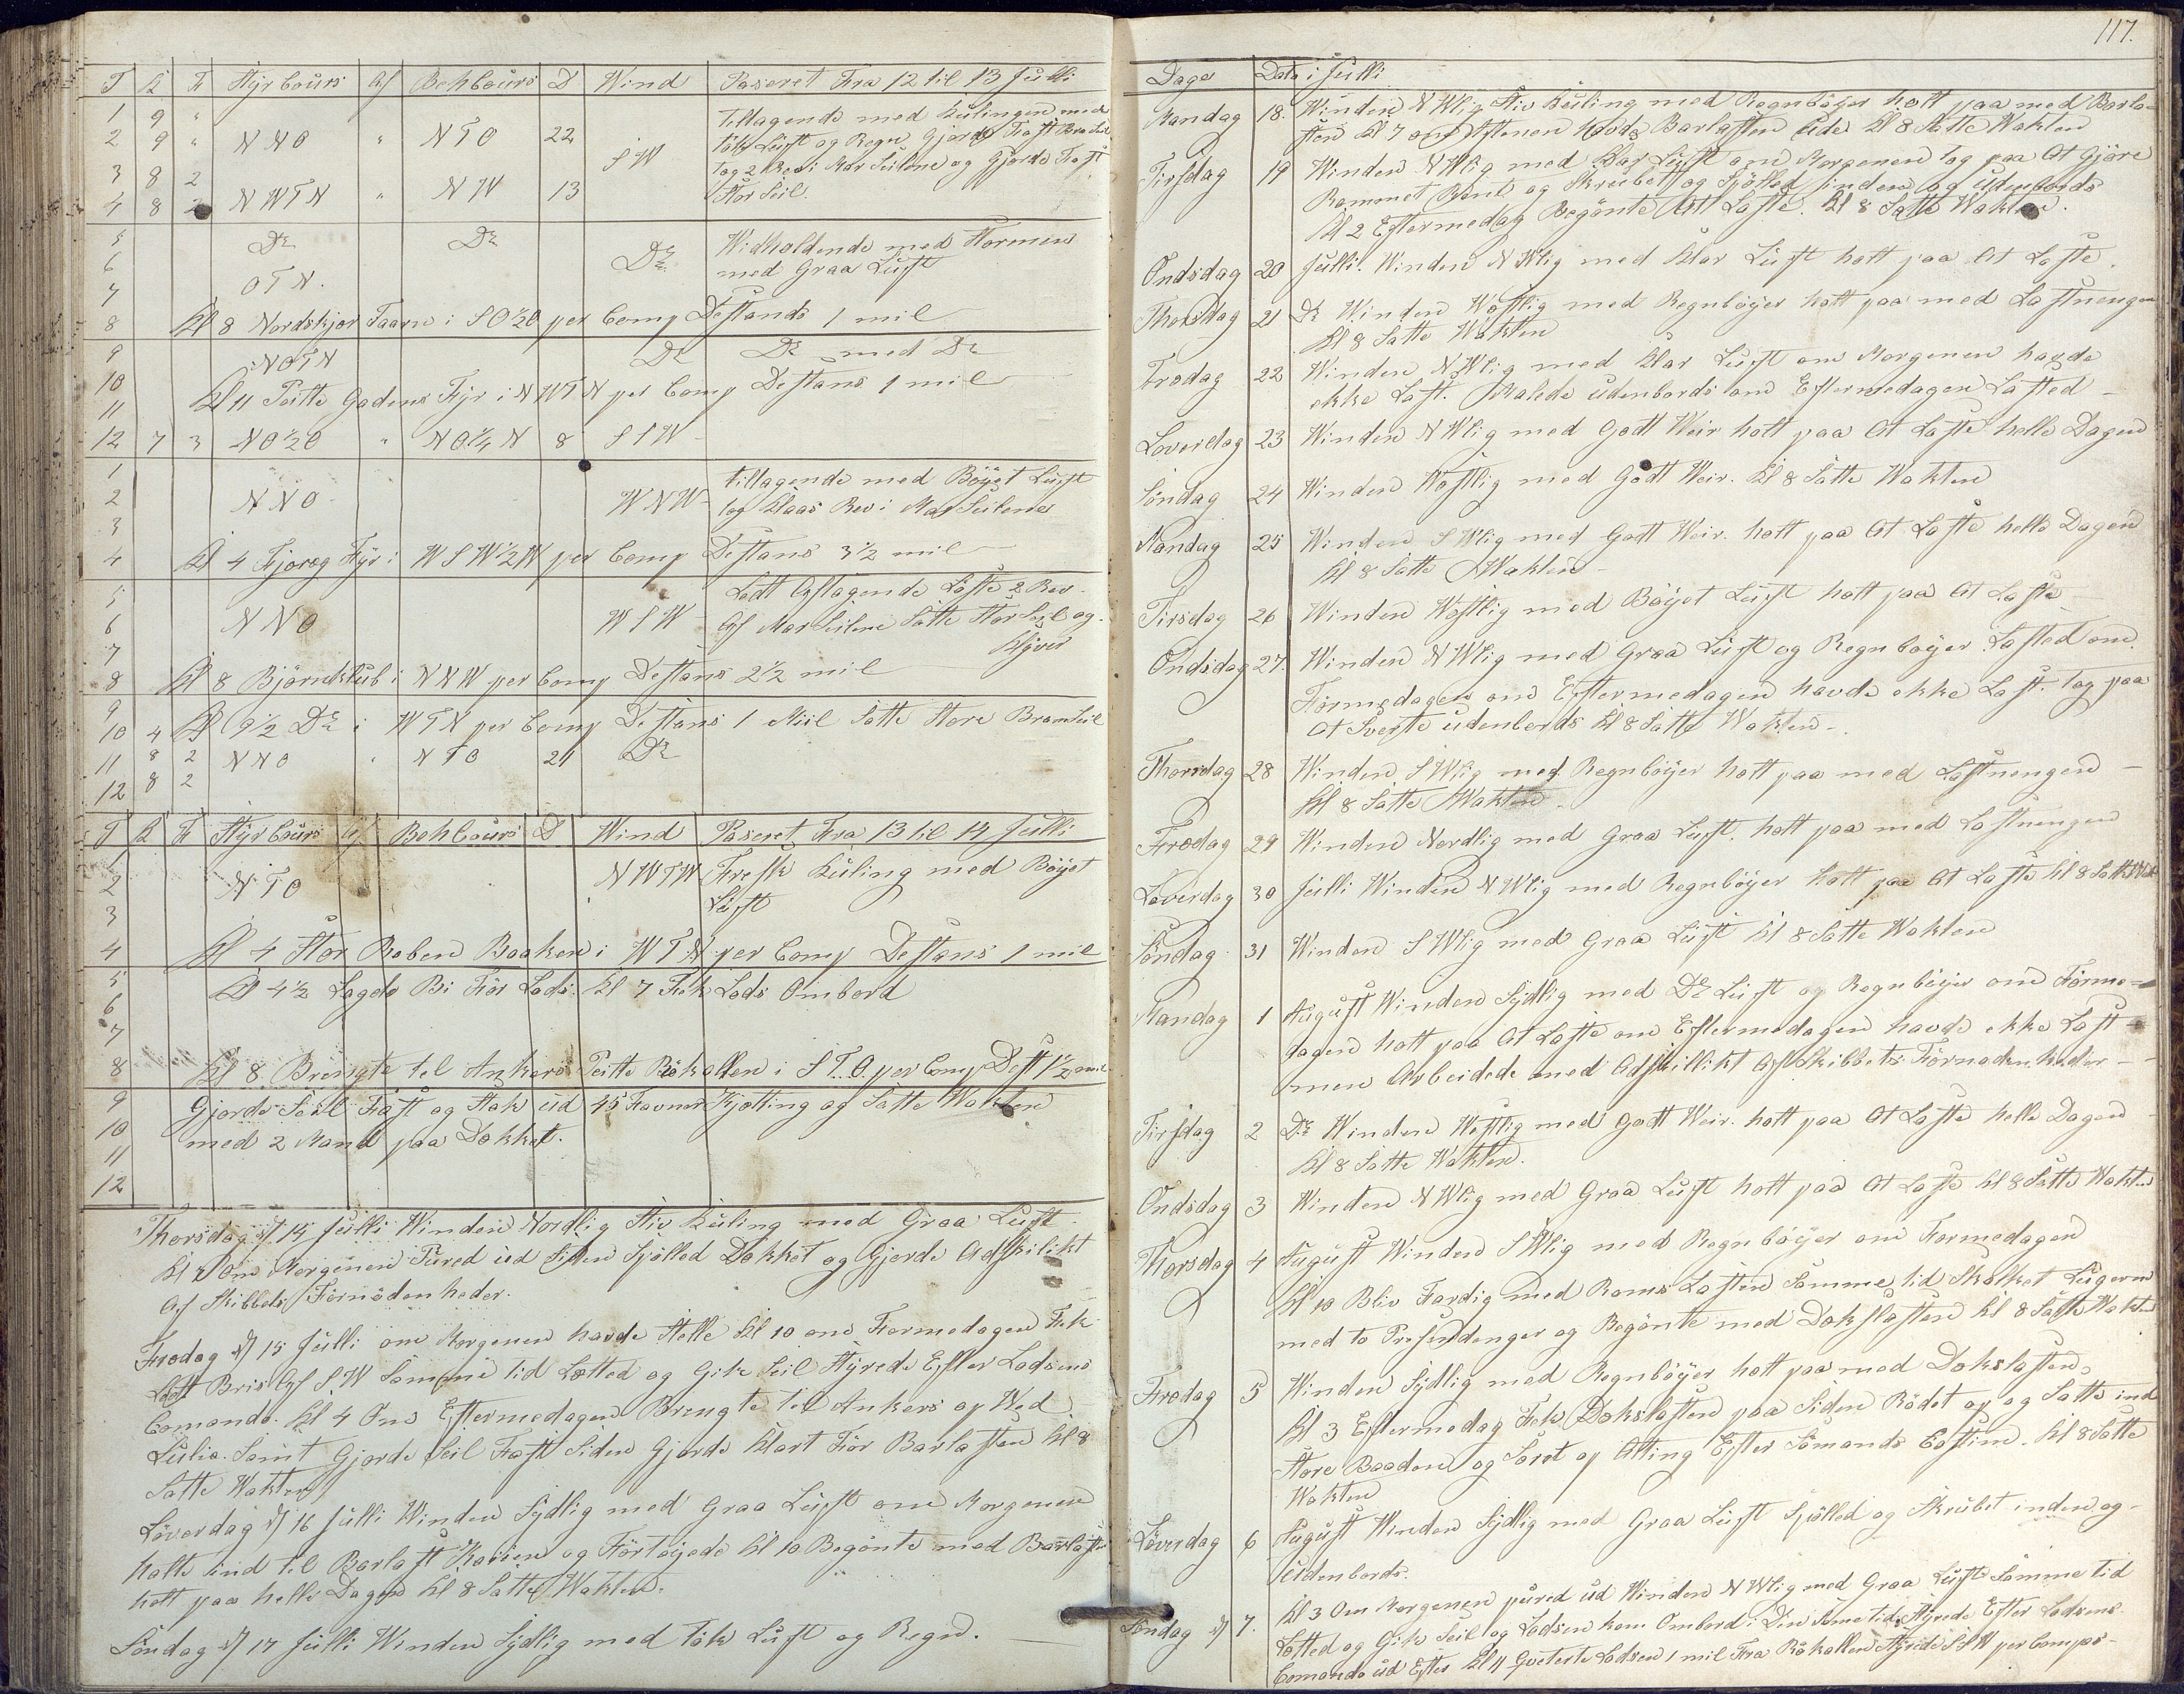 T K F Styrbours Af Behbours D Wind Paseret Fra 12 til 13 Julli
1 9 " Tiltagende med Kulingen med
2 9 " NNO " NTO 22 Tök Luft og Regn Gjorde Fast Bram
3 8 2 SW tog 2 Rev i Mar Seilene og Gjorde Fast
4 8 2 NWTN " NW 13 Stor Seil.
5 Do Do Do Widholdende med Stormen
6 OTN. med Graa Luft
7
8 Kl 8 Nordskjör Taarn i SO½O per Comp Destands 1 mil
9 NOTN Do Do med Do
10
11 Kl 11 Peitte Gadens Fyr i NWTN per Comp Destans 1 mil
12 7 3 NO½O " NO¼N 8 SSW
1 tiltagende med Böyet Luft
2 NNO WNW tog Klaas Rev i Mar Seilenes
3
4 Kl 4 Fjoræg Fyr i WSW½W per Comp Destans 3½ mil
5 Ladt Aftagende Löste 2 Rev
6 NNO WSW Af Mar Seilene Satte Stor Seil og
7 Klyver
8 Kl 8 Bjornklub i NNW per Comp Destans 2½ mil
9
10 4 Kl 9½ Do i WTN per Comp Destans 1 Miil Satte Store Bramseil
11 8 2 NNO " NTO 21 Do
12 8 2
T K F Styrbours Af Behbours D Wind Paseret Fra 13 til 14 Julli
1 NWTW Fresk Kuling med Böyet
2 NTO Luft
3
4 Kl 4 Stor Reben Baaken i WTN per Comp Destans 1 mil
5 Kl 4½ Lagde Bi För Lods. Kl 7 Fek Lods Ombord
6
7
8 Kl 8 Brengte tel Ankers Peitte Rökallen i STO per Comp Dest 1½ mil
9 Gjorde Seil Fast og Stak ud 45 Favner Kjetting og Satte Wakten
10 med 2 Mand paa Dækket.
11
12
Thorsdag d/ 14 Julli Winden Nordlig Stiv Kuling med Graa Luft
Kl om Morgenen Pured ud Siden Spölled Dækket og Gjorde Adskilikt
Af Skibbets Förnödenheder.
Fredag d/ 15 Julli om Morgenen havde Stelle Kl 10 om Formedagen Fek
Ladt Bris Af SW Samme tid Letted og Gik Seil Styrede Efter Lodsens
Comando. Kl 4 Om Eftermedagen Brengte tel Ankers op Wed
Lulia. Samt Gjorde Seil Fast Siden Gjorde Klart För Barlasten Kl 8
Satte Wakten
Löverdag d/ 16 Julli Winden Sydlig med Graa Luft om Morgenen
halte ind til Barlast Kaien og Förtöyede Kl 10 Begönte med Barlasten
holt paa helle Dagen Kl 8 Satte Wakten.
Söndag d/ 17 Julli Winden Sydlig med Tök Luft og Regn.
117.
Dage Data i Julli
Mandag 18. Winden NWlig Stiv Kuling med Regnböyer holt paa med Barla-
sten Kl 7 om Aftenen havde Barlasten Ude Kl 8 Satte Wakten
Tirsdag 19 Winden NWlig med Klar Luft om Morgenen tog paa At Gjöre
Rommet Rent og Skrubet og Spölled inden og Udenbords
Kl 2 Eftermedag Begönte Att Laste. Kl 8 Satte Wakten.
Ondsdag 20 Julli. Winden NWlig med Klar Luft holt paa At Laste.
Thorsdag 21 Do Winden Wæstlig med Regnböyer holt paa med Lastnengen
Kl 8 Satte Wakten
Fredag 22 Winden NWlig med Klar Luft om Morgenen havde
ekke Last. Malede Udenbords om Eftermedagen Lasted
Loverdag 23 Winden NWlig med Godt Weir holt paa At Laste helle Dagen
Söndag 24 Winden Wæstlig med Godt Weir. Kl 8 Satte Wakten
Mandag 25 Winden SWlig med Godt Weir. holt paa At Laste helle Dagen
Kl 8 Satte Wakten
Tirsdag 26 Winden Wæstlig med Böyet Luft holt paa At Laste
Ondsdag 27. Winden NWlig med Graa Luft og Regnböyer. Lasted om
Förmedagen om Eftermedagen havde ekke Last. tog paa
At Sverte udenbords Kl 8 Satte Wakten
Thorsdag 28 Winden SWlig med Regnböyer holt paa med Lastnengen
Kl 8 Satte Wakten
Fredag 29 Winden Nordlig med Graa Luft. holt paa med Lastnengen
Löverdag 30 Julli Winden NWlig med Regnböyer holt paa At Laste Kl 8 Satte Wak
Söndag 31 Winden SWlig med Graa Luft Kl 8 Satte Wakten
Mandag 1 August Winden Sydlig med Do Luft og Regnböyer om Förme-
dagen holt paa At Laste om Eftermedagen havde ekke Last
men Arbeidede med Adskillikt Af Skibbets Förnodenheder
Tirsdag 2 Do Winden Westlig med Godt Weir. holt paa At Laste helle Dagen
Kl 8 Satte Wakten.
Ondsdag 3 Winden NWlig med Graa Luft holt paa At Laste Kl 8 Satte Wakten
Thorsdag 4 August Winden SWlig med Regnböyer om Formedagen
Kl 10 Bliv Færdig med Roms Lasten Samme tid Skalket Lugerne
med to Presendenger og Begönte med Dækslasten Kl 8 Satte Wakten
Fredag 5 Winden Sydlig med Regnböyer holt paa med Dækslasten,
Kl 3 Eftermedag Fek Dækslasten paa Siden Rödet op og Satte ind
Store Baaden og Soret op Alting Efter Sömands Costime. Kl 8 Satte
Wakten
Löverdag 6 August Winden Sydlig med Graa Luft Spölled og Skrubet inden og
Udenbords.
Söndag d/ 7. Kl 3 Om Morgenen pured ud Winden NWlig med Graa Luft Samme tid
Letted og Gik Seil og Lodsen kom Ombord i Den Samme tid. Styrede Efter Lodsens
Comando ud Efter Kl 11 Qveterte Lodsen 1 mil Fra Rökallen Styrede SSW per Compas-